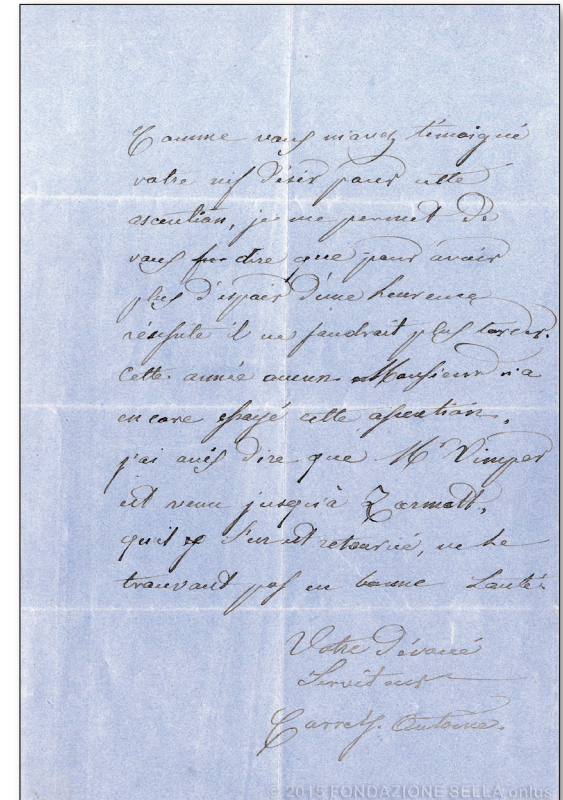 Comme vous m'avez témoigné
votre vif désir pour cette
ascention, je me permet de
vous dire que pour avoir
plus d'espoir d'une heureuse
résussite il ne faudrait plus tarder.
Cette année aucun Monsieur n'a
encore essayé cette assention,
j'ai ouis dire que Mr Vimper
est venu jusqu'à Zermatt,
qu'il s'en est retourné, ne se
trouvant pas en bonne santé.
Votre Dévoué
Serviteur
Carrel Antoine.
© 2015 FONDAZIONE SELLA onlus